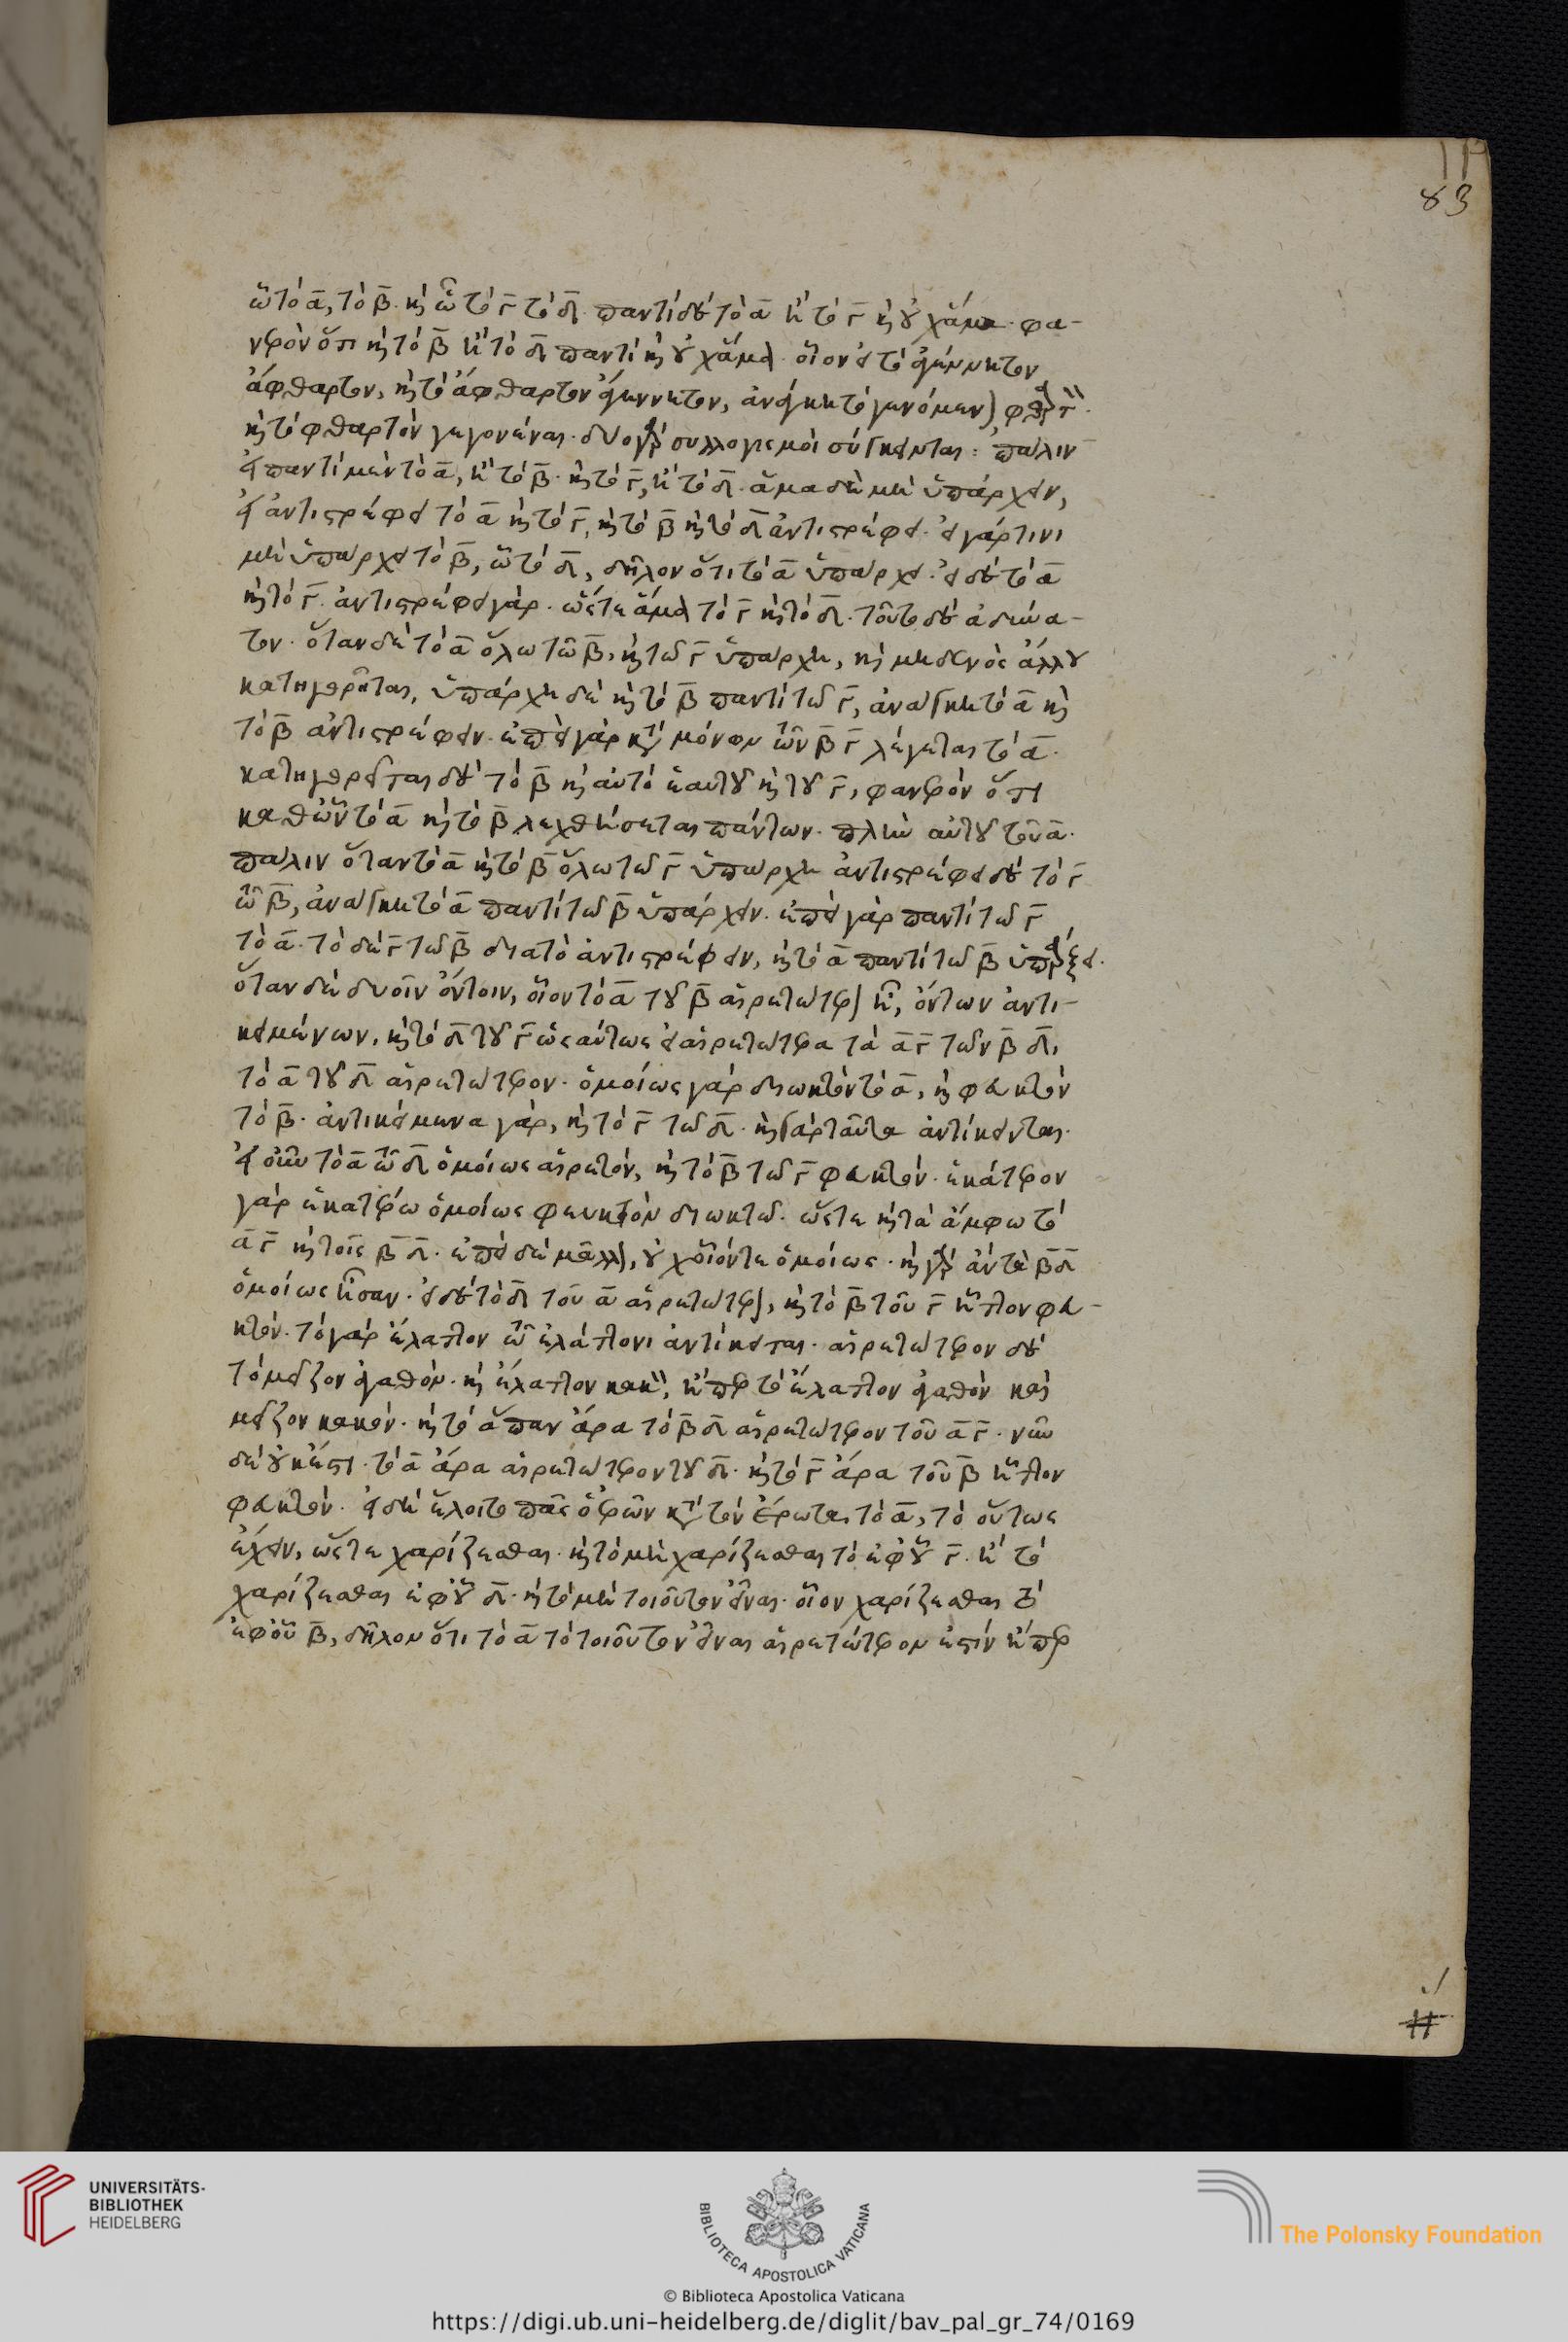 ᾧ τὸ α, τὸ β. καὶ ᾧ τὸ γ τὸ δ. παντὶ δὲ τὸ α ἢ τὸ γ καὶ οὐχ ἅμα. φα-
νερὸν ὅτι καὶ τὸ β ἢ τὸ δ παντὶ καὶ οὐχ ἅμα. οἷον εἰ τὸ ἀγέννητον
ἄφθαρτον, καὶ τὸ ἄφθαρτον ἀγέννητον, ἀνάγκη τὸ γενόμενον φθαρτόν.
καὶ τὸ φθαρτὸν γεγονέναι. δύο γὰρ συλλογισμοὶ σύγκεινται: πάλιν
εἰ παντὶ μὲν τὸ α, ἢ τὸ β. καὶ τὸ γ, ἢ τὸ δ. ἅμα δὲ μὴ ὑπάρχειν,
εἰ ἀντιστρέφει τὸ α καὶ τὸ γ, καὶ τὸ β καὶ τὸ δ ἀντιστρέφει. εἰ γάρ τινι
μὴ ὑπάρχει τὸ β, ᾧ τὸ δ, δῆλον ὅτι τὸ α ὑπάρχει. εἰ δὲ τὸ α
καὶ τὸ γ. ἀντιστρέφει γάρ. ὥστε ἅμα τὸ γ καὶ τὸ δ. τοῦτο δὲ ἀδύνα-
τον. ὅταν δὲ τὸ α ὅλω τῶ β, καὶ τῶ γ ὑπάρχη, καὶ μηδενὸς ἄλλου
κατηγορῆται, ὑπάρχη δὲ καὶ τὸ β παντὶ τῶ γ, ἀνάγκη τὸ α καὶ
τὸ β ἀντιστρέφειν. ἐπεὶ γὰρ κατὰ μόνον τῶν β γ λέγεται τὸ α.
κατηγορεῖται δὲ τὸ β καὶ αὐτὸ ἑαυτοῦ καὶ τοῦ γ, φανερὸν ὅτι
καθ' ὧν τὸ α καὶ τὸ β λεχθήσεται πάντων. πλὴν αὐτοῦ τοῦ α.
πάλιν ὅταν τὸ α καὶ τὸ β ὅλω τῶ γ ὑπάρχη ἀντιστρέφει δὲ τὸ γ
τῶ β, ἀνάγκη τὸ α παντὶ τῶ β ὑπάρχειν. ἐπεὶ γὰρ παντὶ τῶ γ
τὸ α. τὸ δὲ γ τῶ β διὰ τὸ ἀντιστρέφειν, καὶ τὸ α παντὶ τῶ β ὑπάρξει.
ὅταν δὲ δυοῖν ὄντοιν, οἷον τὸ α τοῦ β αἱρετώτερον ἦ, ὄντων ἀντι-
κειμένων, καὶ τὸ δ τοῦ γ ὡσαύτως εἰ αἱρετώτερα τὰ α γ τῶν β δ,
τὸ α τοῦ δ αἱρετώτερον. ὁμοίως γὰρ διωκτὸν τὸ α, καὶ φευκτὸν
τὸ β. ἀντικείμενα γάρ, καὶ τὸ γ τῶ δ. καὶ γὰρ ταῦτα ἀντίκεινται.
εἰ οὖν τὸ α τῶ δ ὁμοίως αἱρετόν, καὶ τὸ β τῶ γ φευκτόν. ἑκάτερον
γὰρ ἑκατέρω ὁμοίως φευκτὸν διωκτῶ. ὥστε καὶ τὰ ἄμφω τὸ
α γ καὶ τοῖς β δ. ἐπεὶ δὲ μᾶλλον, οὐχ οἷόντε ὁμοίως. καὶ γὰρ ἂν τὰ β δ
ὁμοίως ἦσαν. εἰ δὲ τὸ δ τοῦ α αἱρετώτερον, καὶ τὸ β τοῦ γ ἧττον φευ-
κτόν. τὸ γὰρ ἔλαττον τῶ ἐλάττονι ἀντίκειται. αἱρετώτερον δὲ
τὸ μεῖζον ἀγαθὸν. καὶ ἔλαττον κακὸν, ἤπερ τὸ ἔλαττον ἀγαθὸν καὶ
μεῖζον κακόν. καὶ τὸ ἅπαν ἄρα τὸ β δ αἱρετώτερον τοῦ α γ. νῦν
δὲ οὐκ ἔστι. τὸ α ἄρα αἱρετώτερον τοῦ δ. καὶ τὸ γ ἄρα τοῦ β ἧττον
φευκτόν. εἰ δὴ ἕλοιτο πᾶς ὁ ἐρῶν κατὰ τὸν ἔρωτα τὸ α, τὸ οὕτως
ἔχειν, ὥστε χαρίζεσθαι. καὶ τὸ μὴ χαρίζεσθαι τὸ ἐφ' οὗ γ. ἢ τὸ
χαρίζεσθαι ἐφ' οὗ δ. καὶ τὸ μὴ τοιοῦτον εἶναι. οἷον χαρίζεσθαι τὸ
ἐφ' οὗ β, δῆλον ὅτι τὸ α τὸ τοιοῦτον εἶναι αἱρετώτερον ἐστὶν ἤπερ
83
UNIVERSITÄTS-
BIBLIOTHEK
HEIDELBERG
BIBLIOTECA APOSTOLICA VATICANA
The Polonsky Foundation
© Biblioteca Apostolica Vaticana
https://digi.ub.uni-heidelberg.de/diglit/bav_pal_gr_74/0169